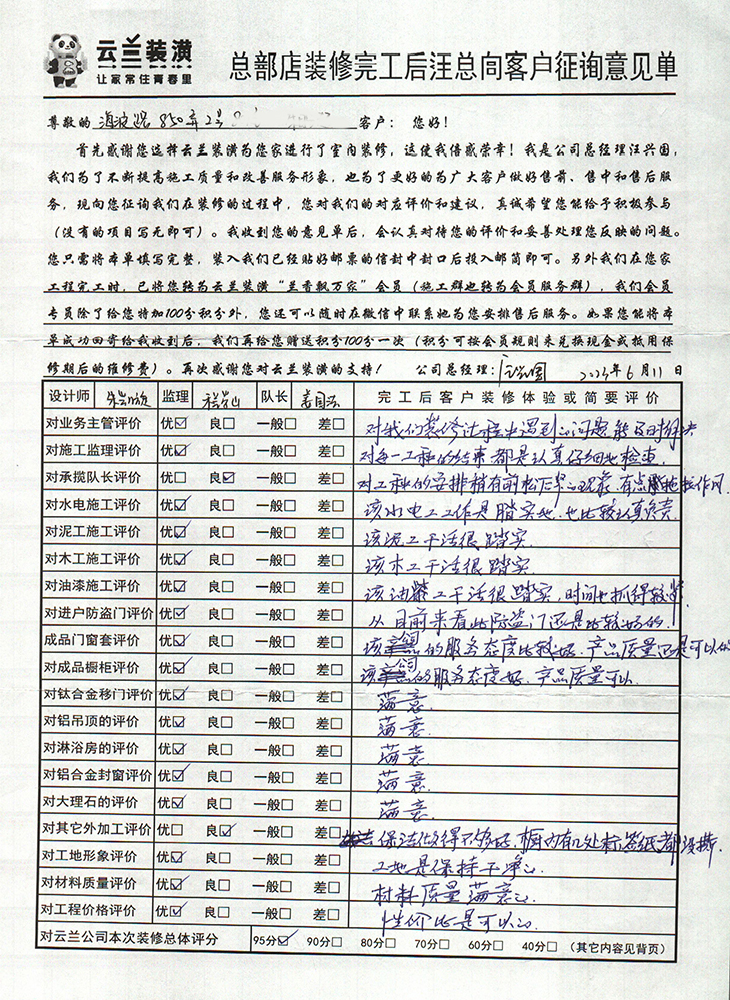 云兰装潢
让家常住青春里
总部店装修完工后汪总向客户征询意见单
尊敬的 海波路850弄2号 客户： 您好！
首先感谢您选择云兰装潢为您家进行了室内装修，这使我倍感荣幸！我是公司总经理汪兴国，
我们为了不断提高施工质量和改善服务形象，也为了更好的为广大客户做好售前、售中和售后服
务，现向您征询我们在装修的过程中，您对我们的对应评价和建议，真诚希望您能给予积极参与
（没有的项目写无即可）。我收到您的意见单后，会认真对待您的评价和妥善处理您反映的问题。
您只需将本单填写完整，装入我们已经贴好邮票的信封中封口后投入邮筒即可。另外我们在您家
工程完工时，已将您转为云兰装潢“兰香飘万家”会员（施工群也转为会员服务群），我们会员
专员除了给您特加100分积分外，您还可以随时在微信中联系她为您安排售后服务。如果您能将本
单成功回寄给我收到后，我们再给您赠送积分100分一次（积分可按会员规则来兑换现金或抵用保
修期后的维修费）。再次感谢您对云兰装潢的支持！ 公司总经理：汪兴国 2023年6月11日
设计师 监理 队长 完工后客户装修体验或简要评价
对业务主管评价 优☑ 良□ 一般□ 差□ 对我们装修过程中遇到的问题能及时解决
对施工监理评价 优☑ 良□ 一般□ 差□ 对每一工种的结束都是认真仔细地检查.
对承揽队长评价 优□ 良☑ 一般□ 差□ 对工种的安排稍有前松后紧的现象.有点
对水电施工评价 优☑ 良□ 一般□ 差□ 该水电工工作是踏实地.也比较认真负责.
对泥工施工评价 优☑ 良□ 一般□ 差□ 该泥工干活很踏实.
对木工施工评价 优☑ 良□ 一般□ 差□ 该木工干活很踏实.
对油漆施工评价 优☑ 良□ 一般□ 差□ 该油漆工干活很踏实,时间也抓得较紧.
对进户防盗门评价 优☑ 良□ 一般□ 差□ 从目前来看此防盗门还是比较好的.
成品门窗套评价 优☑ 良□ 一般□ 差□ 该公司的服务态度比较好.产品质量还是可以的
对成品橱柜评价 优☑ 良□ 一般□ 差□ 该公司的服务态度好.产品质量可以.
对钛合金移门评价 优☑ 良□ 一般□ 差□ 满意.
对铝吊顶的评价 优☑ 良□ 一般□ 差□ 满意.
对淋浴房的评价 优☑ 良□ 一般□ 差□ 满意
对铝合金封窗评价 优☑ 良□ 一般□ 差□ 满意.
对大理石的评价 优☑ 良□ 一般□ 差□ 满意.
对其它外加工评价 优□ 良☑ 一般□ 差□ 保洁做得不够好.橱内有几处标签纸都没撕.
对工地形象评价 优☑ 良□ 一般□ 差□ 工地是保持干净的
对材料质量评价 优☑ 良□ 一般□ 差□ 材料质量满意的
对工程价格评价 优☑ 良□ 一般□ 差□ 性价比是可以的
对云兰公司本次装修总体评分 95分☑ 90分□ 80分□ 70分□ 60分□ 40分□ （其它内容见背页）